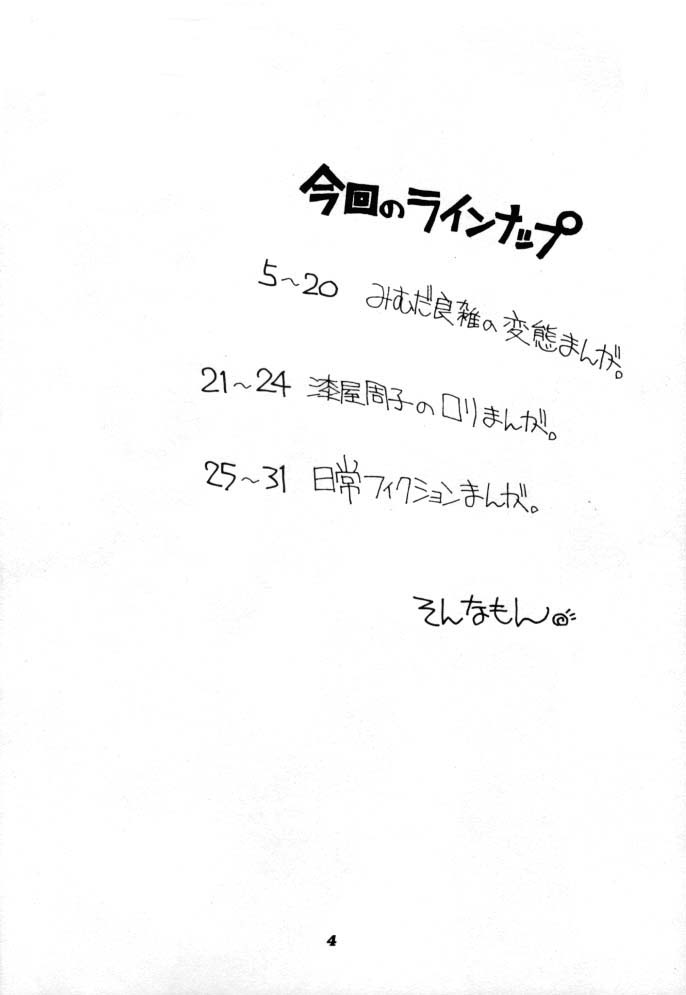 今回のラインナップ
5～20 みむだ良雑の変態まんが。
21～24 漆屋周子のロリまんが。
25～31 日常フィクションまんが。
そんなもん
4